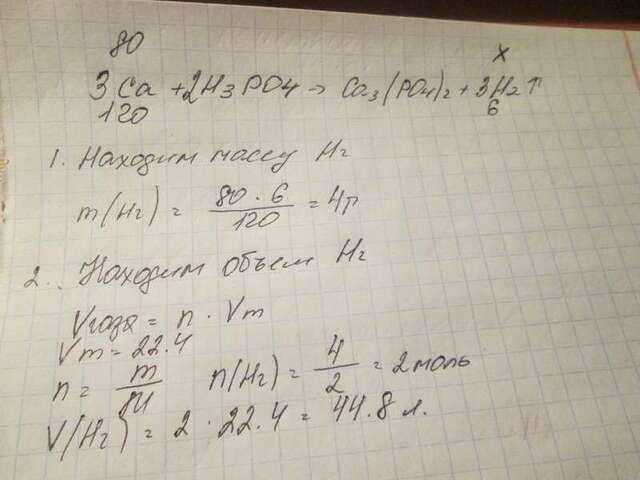 80 x
3Ca + 2H3PO4 → Ca3(PO4)2 + 3H2↑
120 6
1. Находим массу H2
m(H2) = 80 · 6 / 120 = 4г
2. Находим объем H2
Vгаза = n · Vm
Vm = 22.4
n = m / M n(H2) = 4 / 2 = 2 моль
V(H2) = 2 · 22.4 = 44.8 л.